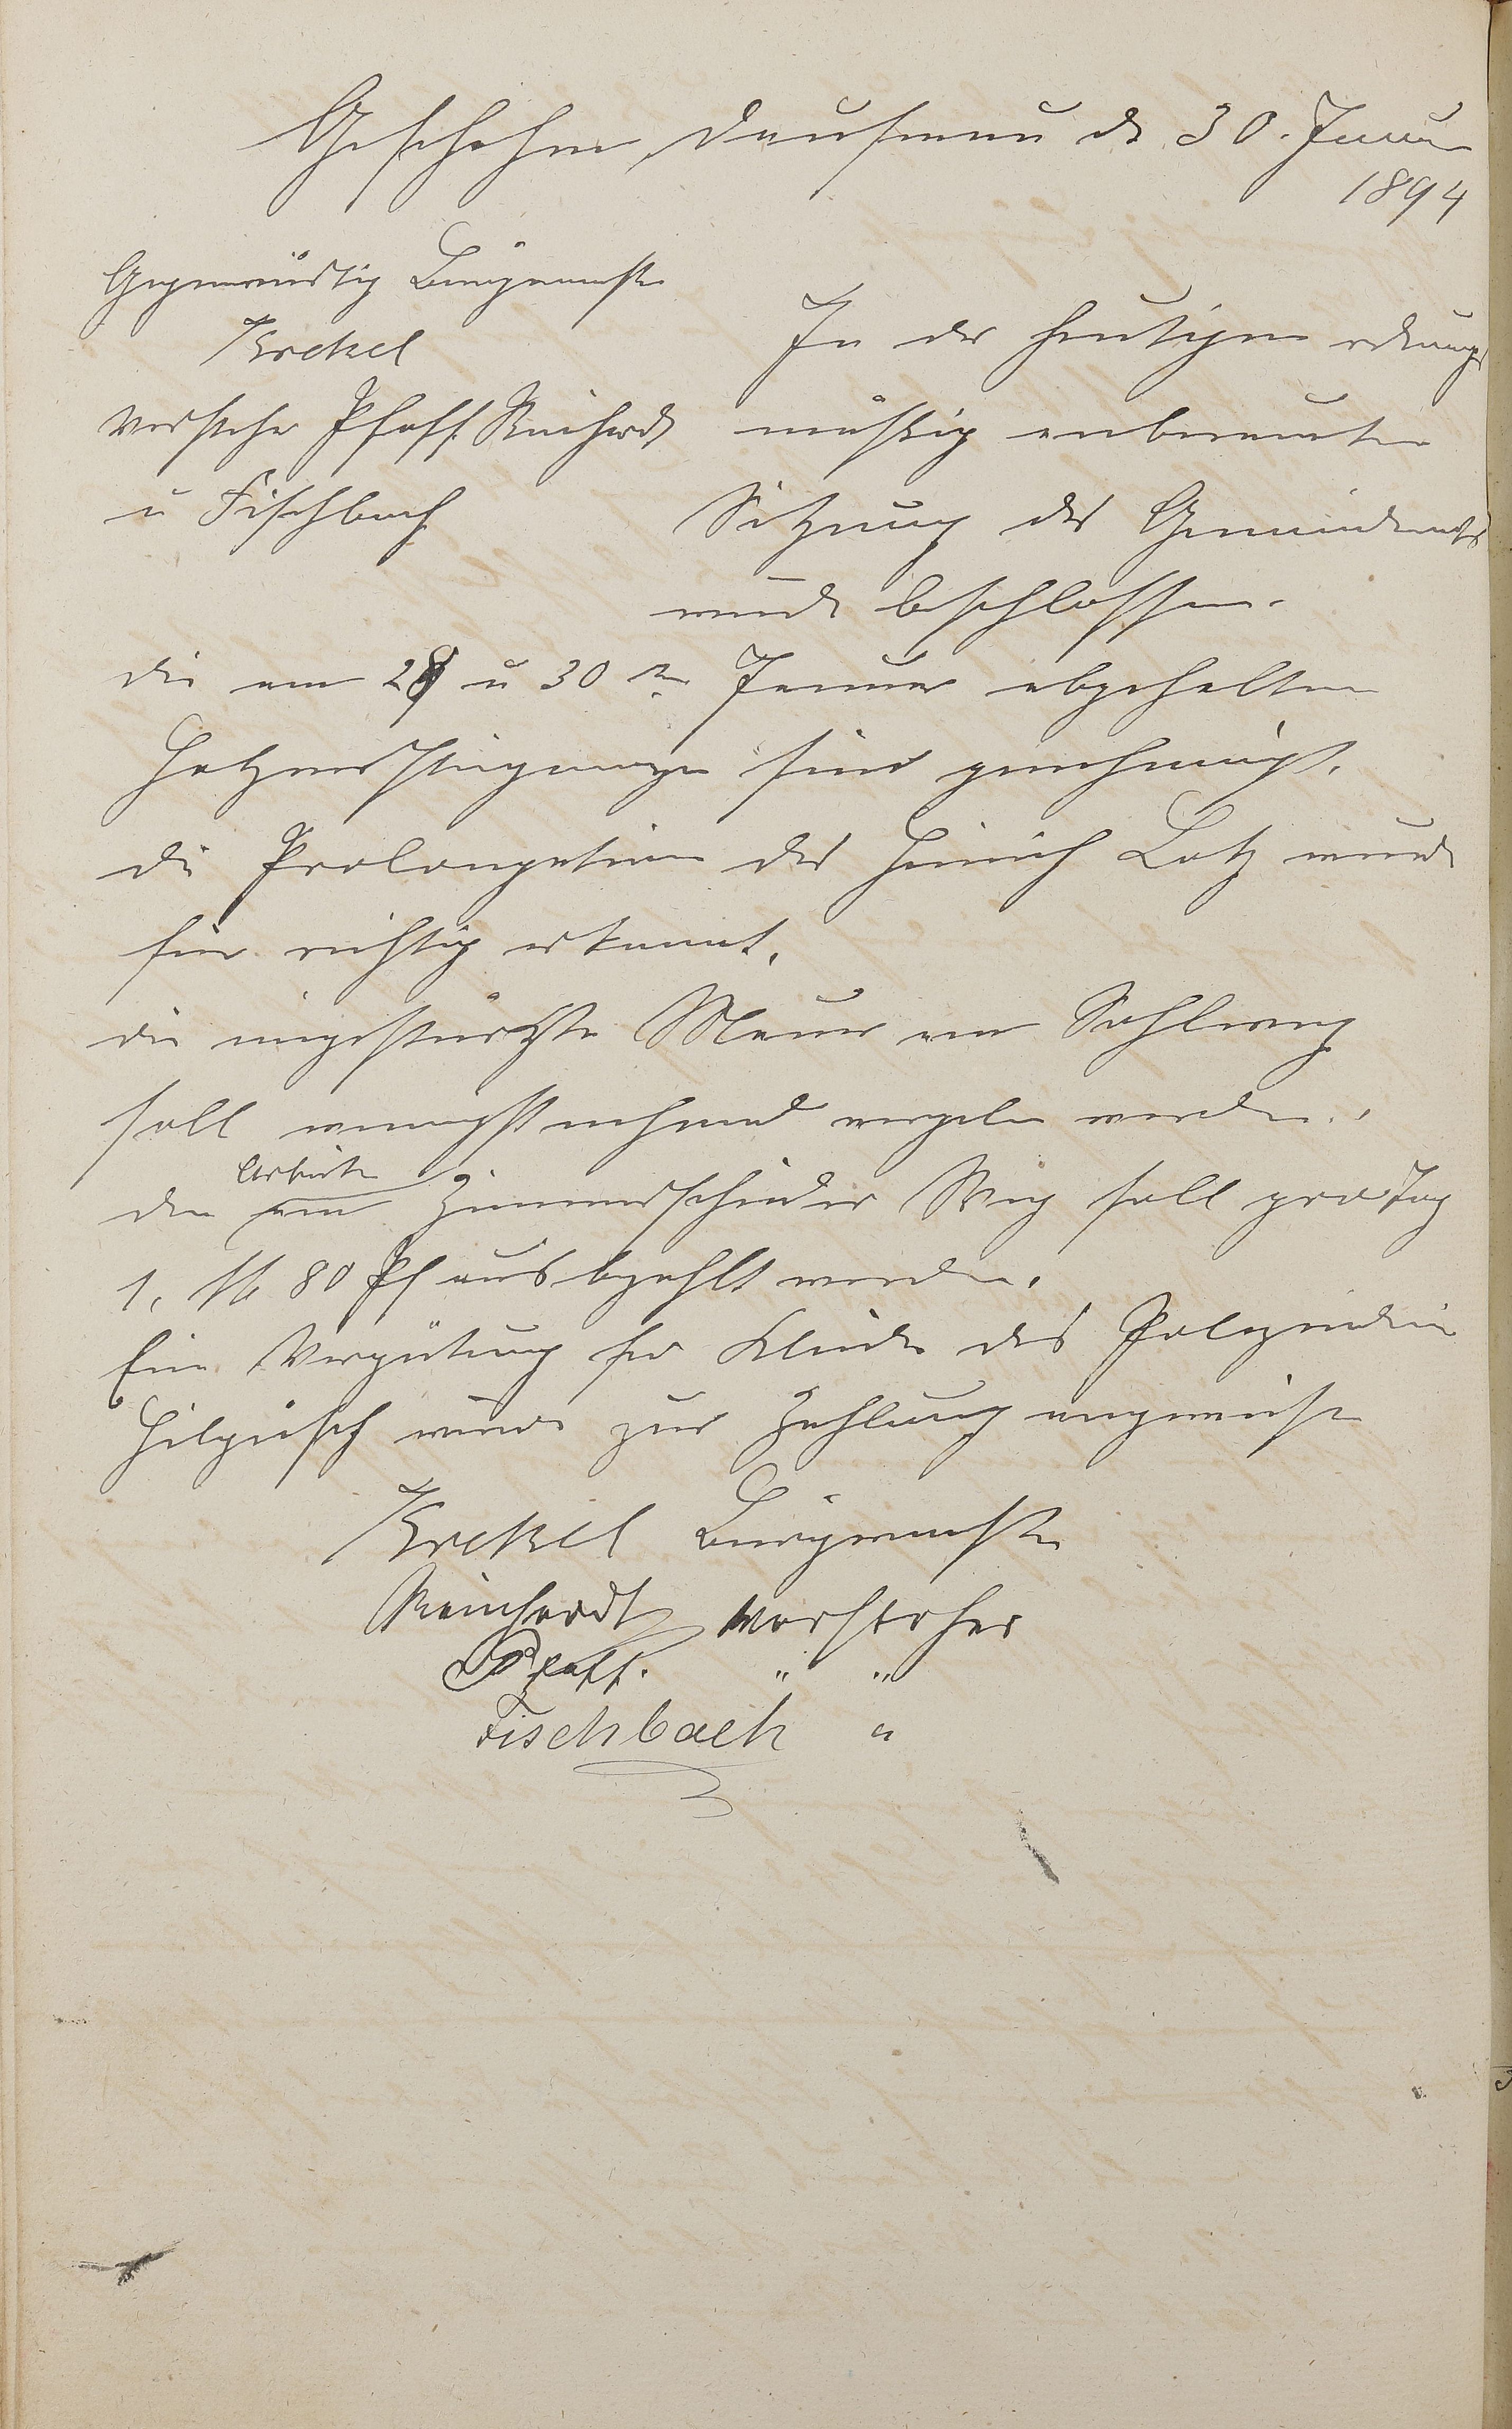 Geschehen, Dausenau d. 30. Januar
1894
Gegenwärtig Bürgermeister
Krekel
Vorsteher Pfaff. Reinhardt
u Fischbach
In der heutigen ordnungs
mäßig anberaumten
Sitzung des Gemeinderaths
wurde beschlossen.
die am 29 u 30 ten Januar abgehalten
Holzversteigerungen sind genehmigt.
die Prolongation des Heinrich Lotz wurde
für richtig erkannt.
die eingestürtzte Mauer am Sohlweg
soll wenigstnehmend vergeben werden.
den Arbeiter am Zimmerschieder Weg soll pro Tag
1, M 80 Pf ausbezahlt werden.
Eine Vergütung für Kleider des Polizeidiener
Hilgisch wurde zur Zahlung angewiesen
Krekel Bürgermeister
Reinhardt Vorsteher
Pfaff. " "
Fischbach "